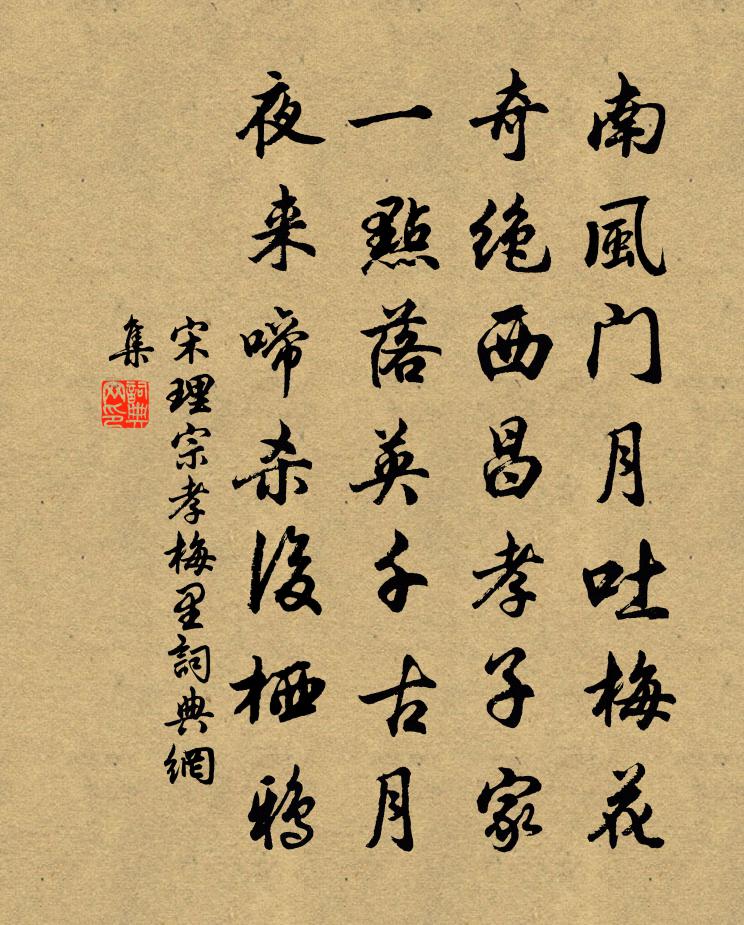 南風门月吐梅花
奇绝西昌孝子家
一點落英千古月
夜来啼杀後栖鸦
宋理宗孝梅里詞典網
集
詞典网印